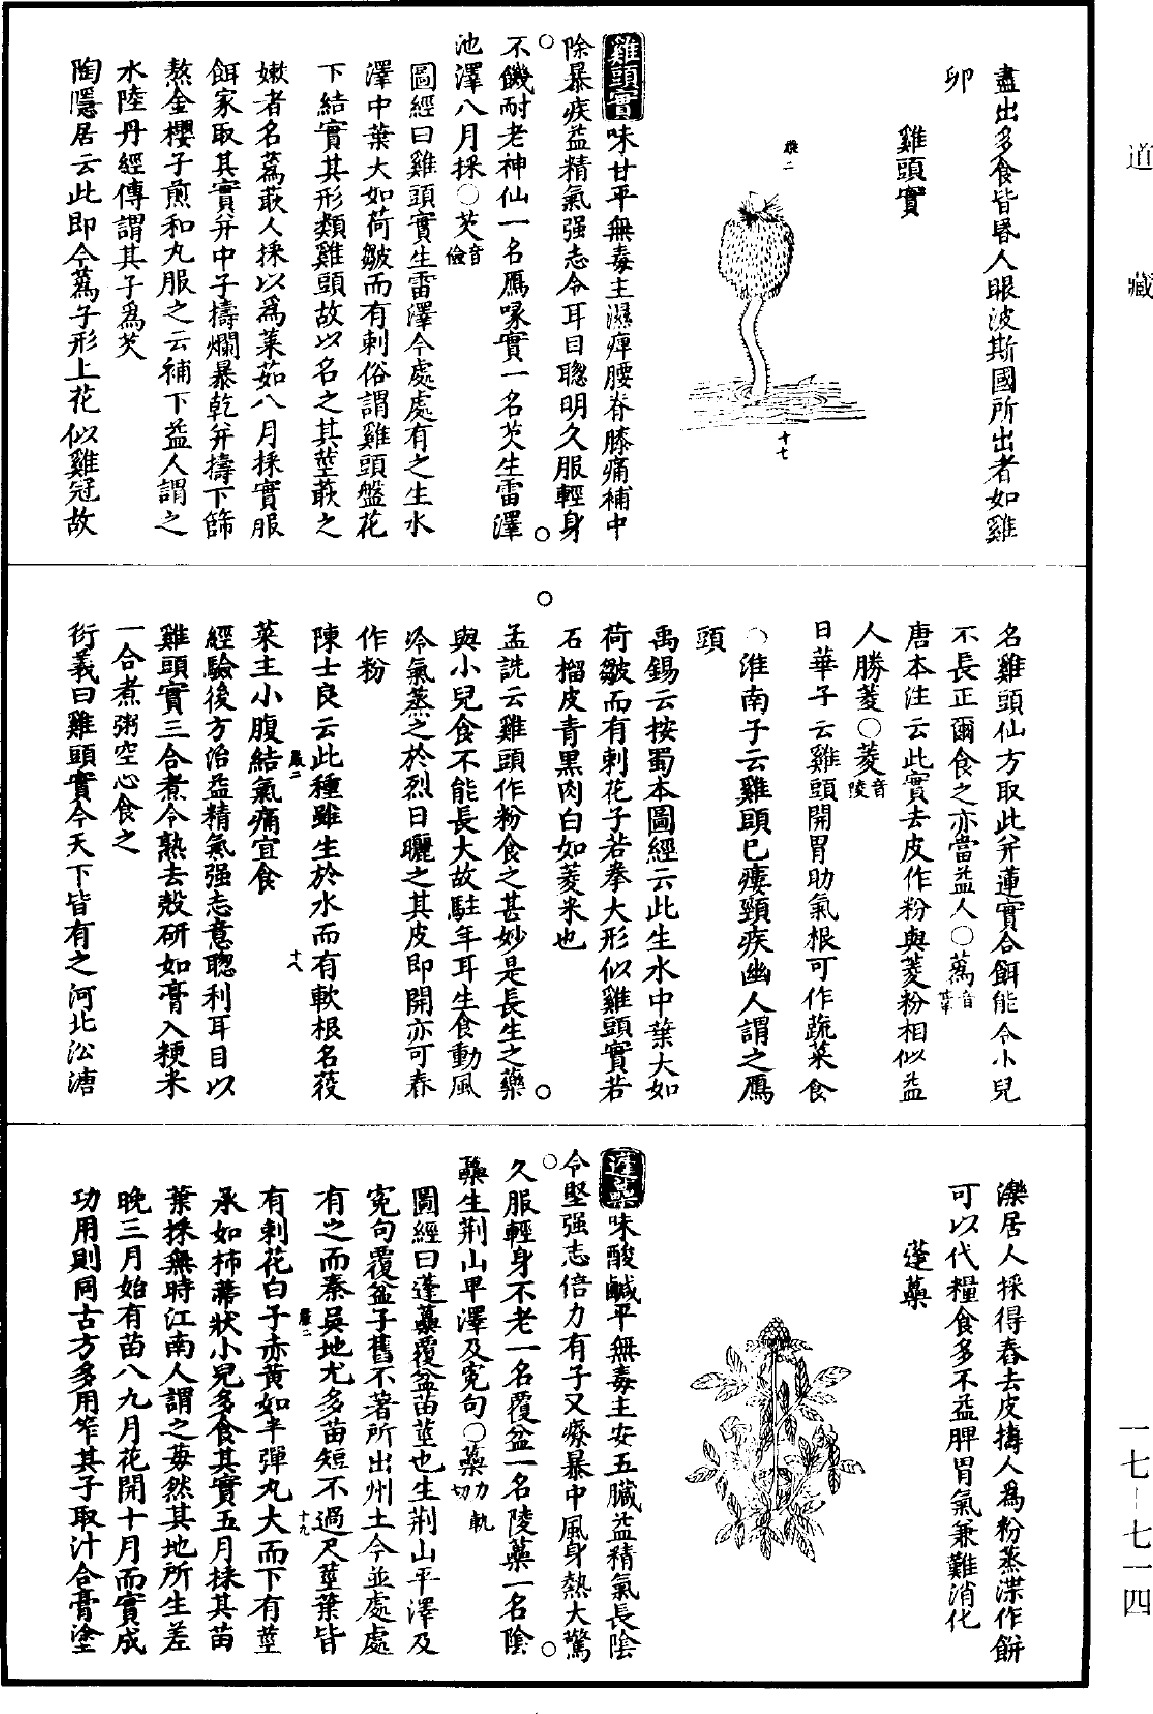 道藏
盡出多食皆㫺人眼波斯國所出者如雞
卵
雞頭實
雞頭實味甘平無毒主濕痺腰脊膝痛補中
除暴疾益精氣强志令耳目聰明久服輕身
不饑耐老神仙一名鴈喙實一名芡生雷澤
池澤八月採○芡音儉
圖經曰雞頭實生雷澤今處處有之生水
澤中葉大如荷皺而有刺俗謂雞頭盤花
下結實其形類雞頭故以名之其莖蔌之
嫩者名蔿蔌人採以爲菜茹八月採實服
餌家取其實并中子擣爛暴乾并擣下篩
熬金櫻子煎和丸服之云補下益人謂之
水陸丹經傳謂其子爲芡
陶隱居云此即今蔿子形上花似雞冠故
名雞頭仙方取此并蓮實合餌能令小兒
不長正爾食之亦當益人○蔿音
唐本注云此實去皮作粉與菱粉相似益
人勝菱○菱音陵
日華子云雞頭開胃助氣根可作蔬菜食
○淮南子云雞頭已瘻頸疾幽人謂之鴈
頭
禹錫云按蜀本圖經云此生水中葉大如
荷皺而有刺花子若拳大形似雞頭實若
石榴皮青黑肉白如菱米也
孟詵云雞頭作粉食之甚妙是長生之藥
與小兒食不能長大故駐年耳生食動風
冷氣蒸之於烈日曬之其皮即開亦可舂
作粉
陳士良云此種雖生於水而有軟根名䓈
菜主小腹結氣痛宜食
經驗後方治益精氣强志意聰利耳目以
雞頭實三合煮令熟去殼研如膏入粳米
一合煮粥空心食之
衍義曰雞頭實今天下皆有之河北㳂溏
濼居人採得舂去皮擣人爲粉蒸渫作餅
可以代糧食多不益脾胃氣兼難消化
蓬蘽
蓬蘽味酸鹹平無毒主安五臟益精氣長陰
令堅强志倍力有子又療暴中風身熱大驚
久服輕身不老一名覆盆一名陵蘽一名陰
蘽生荆山平澤及寃句○蘽力軌切
圖經曰蓬蘽覆盆苗莖也生荆山平澤及
寃句覆盆子舊不著所出州土今並處處
有之而秦吳地尤多苗短不過尺莖葉皆
有刺花白子赤黄如半彈丸大而下有莖
承如柿蔕狀小兒多食其實五月採其苗
葉採無時江南人謂之莓然其地所生差
晚三月始有苗八九月花開十月而實成
功用則同古方多用笮其子取汁合膏塗
十七
十八
十九
一七-七一四